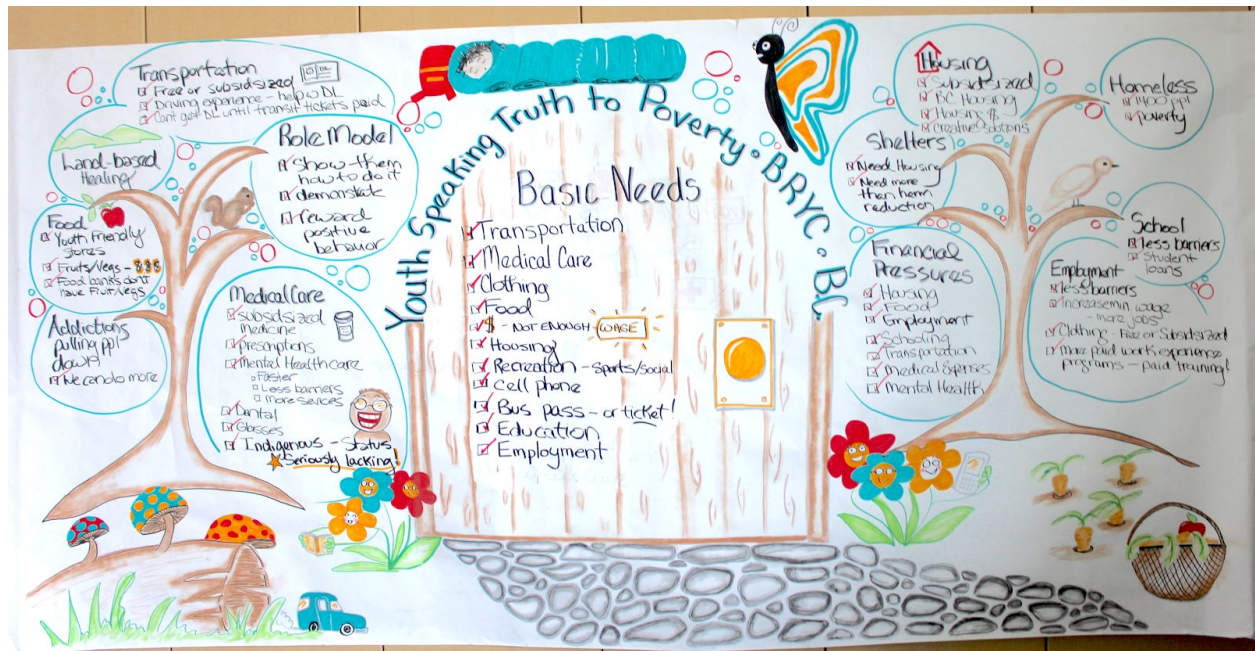 Youth Speaking Truth to Poverty • BRYC • BC
Transportation
Free or subsidized
Driving experience - help w DL
Cant get DL until transit tickets paid
DL
Land-based
Healing
Role Model
Show them
how to do it
demonstrate
reward
positive
behavior
Food
Youth friendly
stores
Fruits/Vegs - $$$
Food banks don't
have Fruit/vegs
Addictions
pulling ppl
down
We can do more
Medical Care
subsidsized
medicine
Prescriptions
Mental Health care
Faster
Less barriers
more services
Dental
Glasses
Indigenous - Status
Seriously lacking!
Basic Needs
Transportation
Medical Care
Clothing
Food
$ - NOT ENOUGH WAGE
Housing
Recreation - sports/social
Cell phone
Bus pass - or ticket!
Education
Employment
Housing
Subsidsized
BC Housing
Housing $
Creative solutions
Homeless
1400 ppl
poverty
Shelters
Need Housing
Need more
than harm
reduction
School
less barriers
Student
loans
Financial
Pressures
Housing
Food
Employment
Schooling
Transportation
Medical Expenses
Mental Health
Employment
less barriers
Increase min wage
- more jobs
Clothing - Free or Subsidized
More paid work experience
programs - paid training!